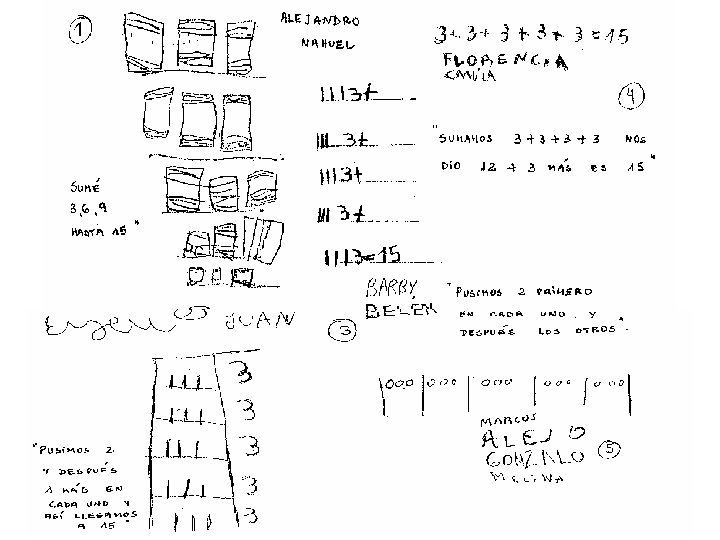 1
ALEJANDRO
NAHUEL
SUMÉ
3,6,9
HASTA 15"
3+3+3+3+3=15
FLORENCIA
CAMILA
4
"SUMAMOS 3+3+3+3 NOS
DIO 12 + 3 MÁS ES 15"
3+
3+
3+
3+
3=15
BARBY
BELEN
3
"PUSIMOS 2 PRIMERO
EN CADA UNO Y
DESPUÉS LOS OTROS".
JUAN
3
3
3
3
3
"PUSIMOS 2
Y DESPUÉS
1 MÁS EN
CADA UNO Y
ASÍ LLEGAMOS
A 15"
000 000 000 000 000
MARCOS
ALEJO
GONZALO
MELINA
5